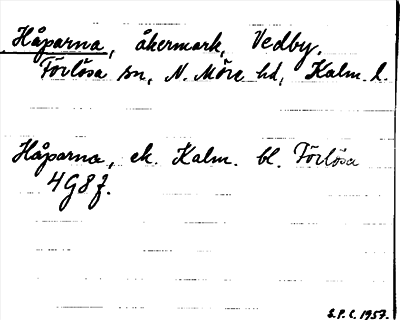 Håparna, åkermark, Vedby,
Förlösa sn, N. Möre hd, Kalm. l.
Håparna, ek. Kalm. bl. Förlösa
4G8f.
S.P.C. 1957.